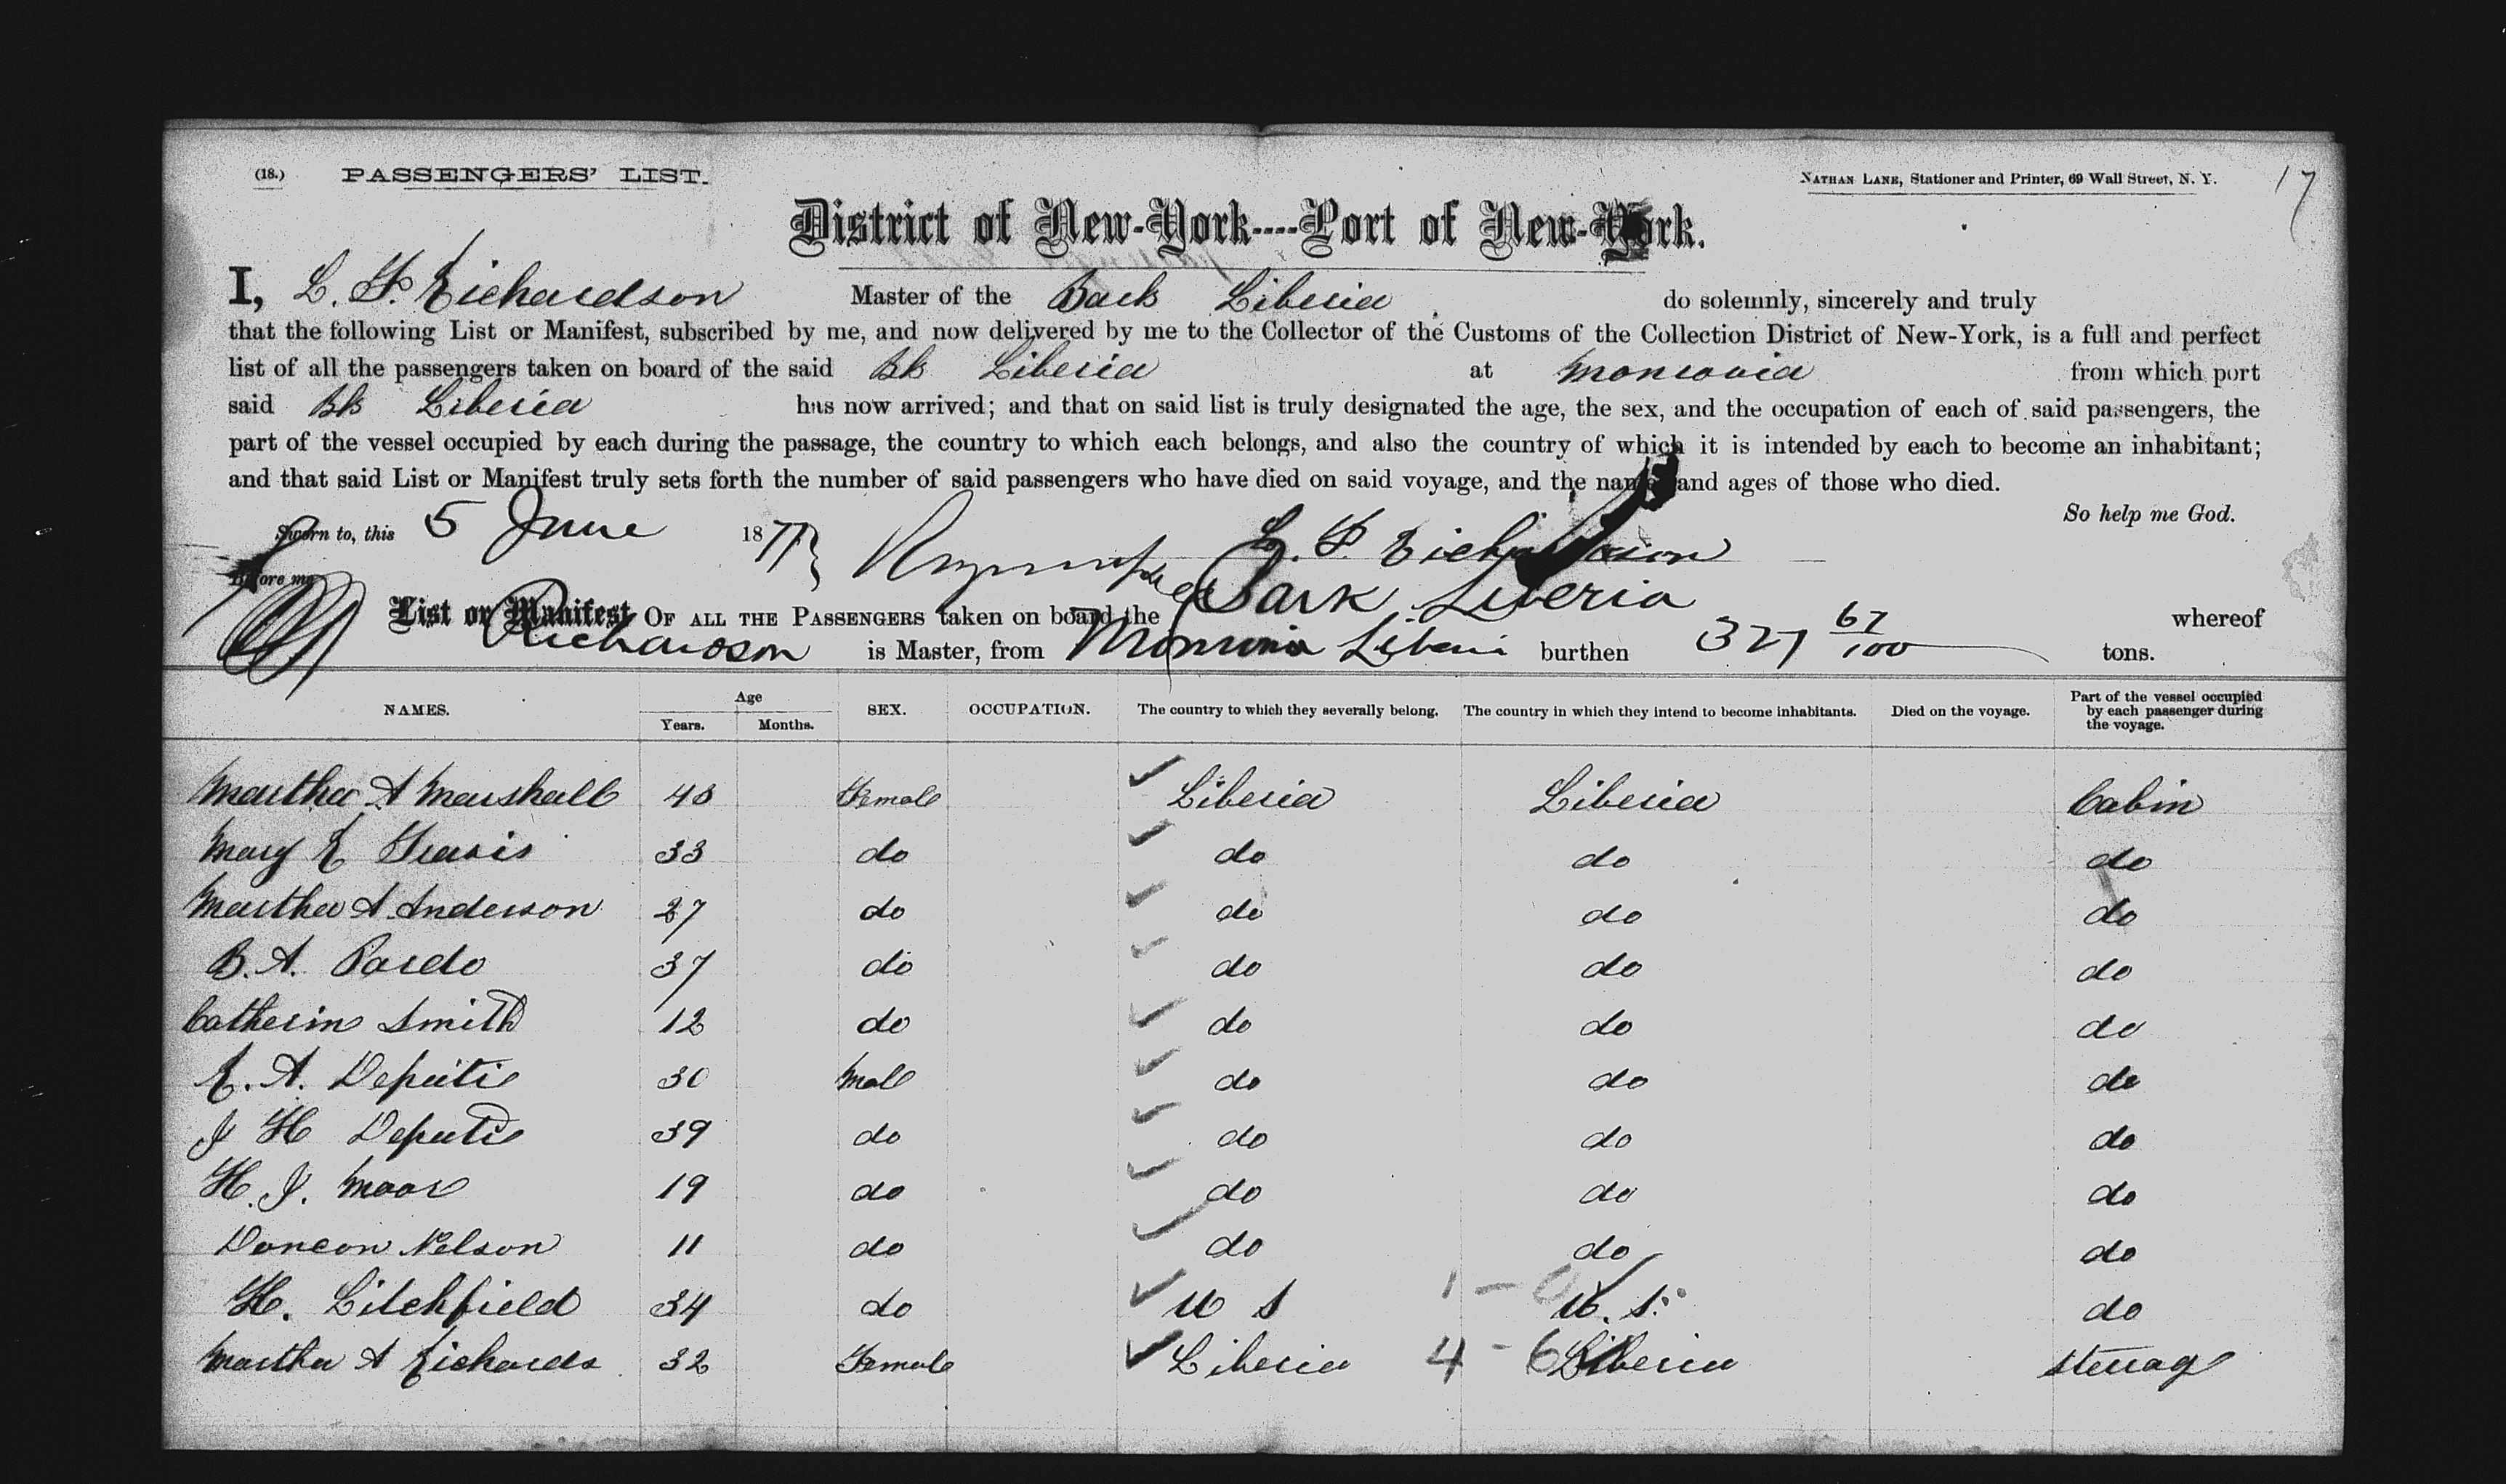 (18.) PASSENGERS' LIST. NATHAN LANE, Stationer and Printer, 69 Wall Street, N. Y. 17
District of New-York----Port of New-York.
I, L. F. Richardson Master of the Bark Liberia do solemnly, sincerely and truly
that the following List or Manifest, subscribed by me, and now delivered by me to the Collector of the Customs of the Collection District of New-York, is a full and perfect
list of all the passengers taken on board of the said Bk Liberia at Monrovia from which port
said Bk Liberia has now arrived; and that on said list is truly designated the age, the sex, and the occupation of each of said passengers, the
part of the vessel occupied by each during the passage, the country to which each belongs, and also the country of which it is intended by each to become an inhabitant;
and that said List or Manifest truly sets forth the number of said passengers who have died on said voyage, and the names and ages of those who died.
So help me God.
Sworn to, this 5 June 1877 L. F. Richardson
Before me
List or Manifest OF ALL THE PASSENGERS taken on board the Bark Liberia whereof
Richardson is Master, from Monrovia Liberia burthen 327 67/100 tons.
NAMES. Age Years. Months. SEX. OCCUPATION. The country to which they severally belong. The country in which they intend to become inhabitants. Died on the voyage. Part of the vessel occupied by each passenger during the voyage.
Martha A Marshall 48 Female Liberia Liberia Cabin
Mary E Travis 33 do do do do
Martha A. Anderson 27 do do do do
B. A. Pardo 37 do do do do
Catherin Smith 12 do do do do
E. A. Deputie 30 Male do do do
J H Deputie 39 do do do do
H. J. Moor 19 do do do do
Doncon Nelson 11 do do do do
H. Litchfield 34 do U S U. S. do
Martha A Richards 32 Female Liberia 4 - 6 Liberia Sterrage